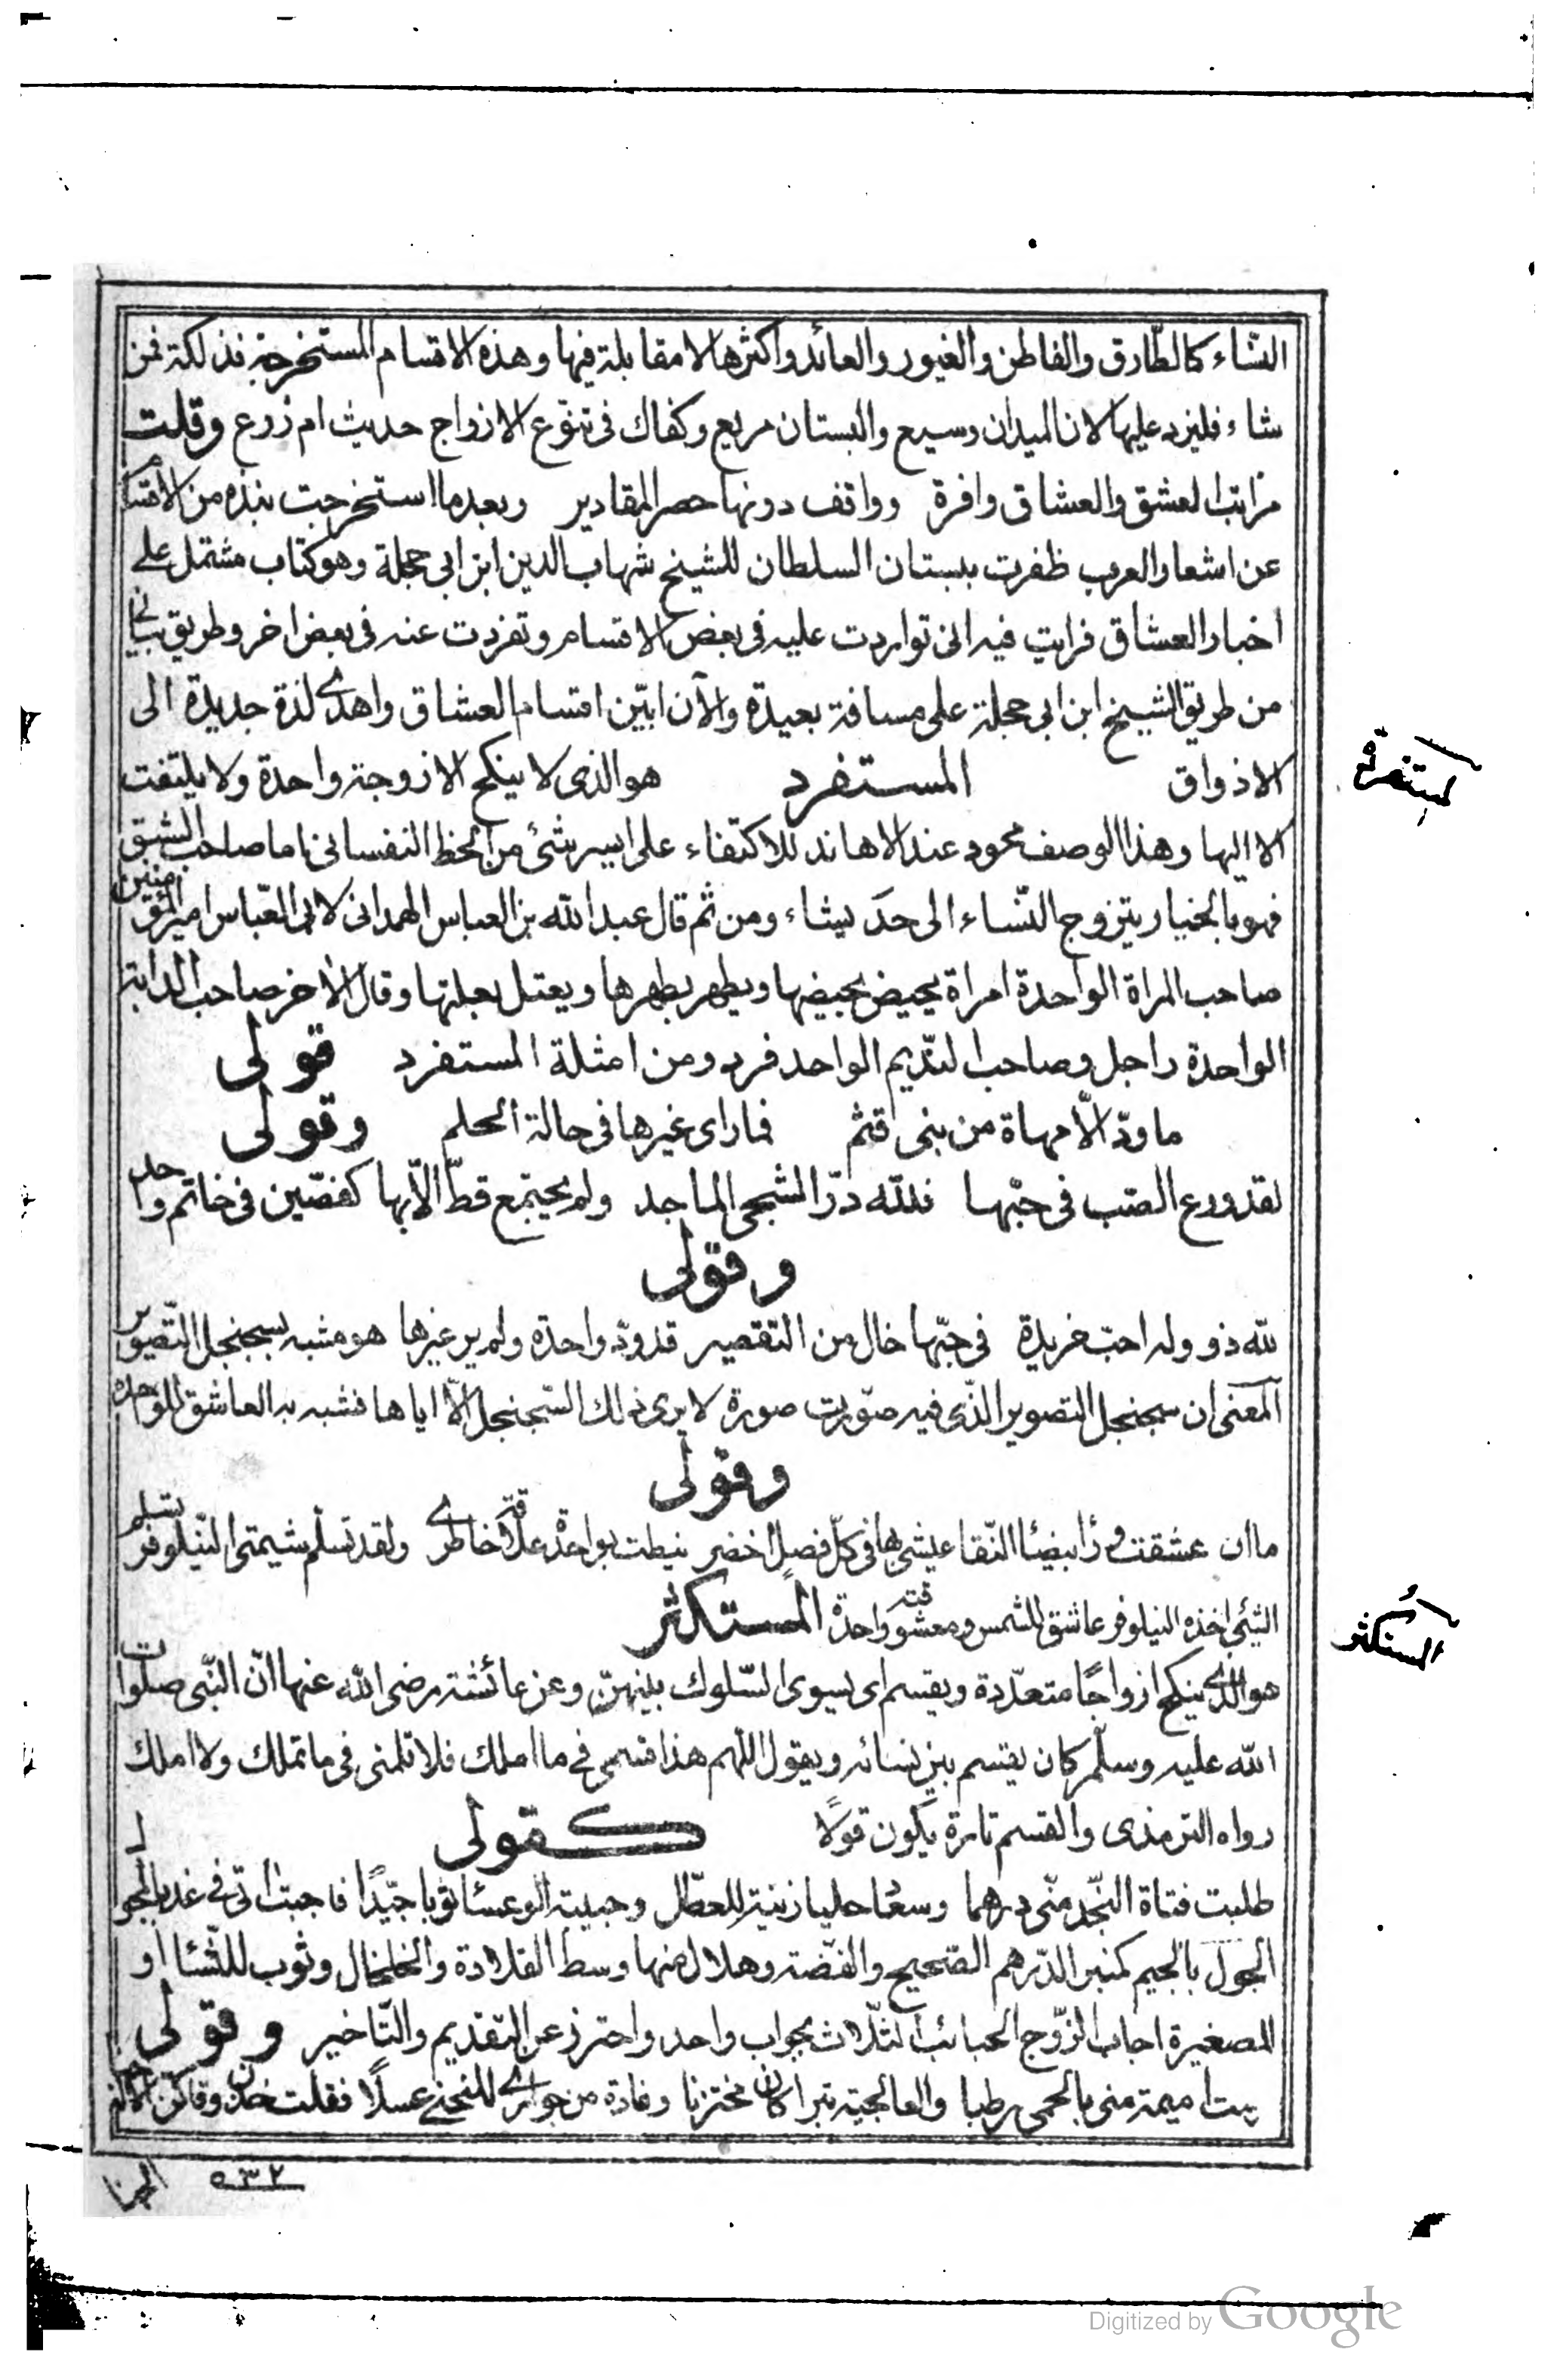 النساء كالطارق والفاطن والغيور والعائد واكثرها لا مقابلة فيها وهذه الاقسام المستخرجة فذلكة فمن
شاء فليزد عليها لان الميدان وسيع والبستان مريع وكفاك فى تنوّع الازواج حديث ام زرع وقلت
مراتب العشق والعشاق وافرة وواقف دونها حصر المقادير وبعدما استخرجت نبذه من الاقسام
عن اشعار العرب ظفرت ببستان السلطان للشيخ شهاب الدين ابن ابى حجلة وهو كتاب مشتمل على
اخبار العشاق فرايت فيه انى تواردت عليه فى بعض الاقسام وتفردت عنه فى بعض اخر وطريق بيانى
من طريق الشيخ ابن ابى حجلة على مسافة بعيدة والآن ابيّن اقسام العشاق واهدى لذة جديدة الى
الاذواق المستفرد هو الذى لا ينكح الا زوجة واحدة ولا يلتفت
المستفرد
الا اليها وهذا الوصف محمود عند الاهاند للاكتفاء على ايسر شئ من الحظ النفسانى اما صاحب الشبق
فهو بالخيار يتزوج النساء الى حدّ يشاء ومن ثم قال عبد الله بن العباس الهمدانى لابى العبّاس امير المؤمنين
صاحب المراة الواحدة امراة يحيض بحيضها ويطهر بطهرها ويعتل بعلتها وقال الآخر صاحب الدابة
الواحدة راجل وصاحب النديم الواحد فرد ومن امثلة المستفرد قولى
ما ودّ الّا مهاة من بنى قثم فما راى غيرها فى حالة الحلم وقولى
لقد ورع الصّب فى حبّها فللّه درّ الشجى الماجد ولم يجتمع قطّ الّا بها كفصّين فى خاتم واحد
وقولى
للّه ذو وله احبّ فريدة فى حبّها خال من التقصير قد ودّ واحدة ولم ير غيرها هو مشبه بسجنجل التّصوير
المعنى ان سجنجل التصوير الذّى فيه صوّرت صورة لا يرى ذلك السّجنجل الّا اياها فشبه به العاشق للواحدة
وقولى
ما ان عشقت بيضا النّقا عيشى بها فى كلّ فصل اخضر نيطت بواحدة علاقة خاطرى ولقد تسلّم شيمتى النّيلوفر تسلم
الشئ اخذه النيلوفر عاشق للشمس ومعشوقته واحدة المستكثر
المستكثر
هو الذى ينكح ازواجًا متعدّدة ويقسم اى يسوى السّلوك بينهنّ وعن عائشة رضى الله عنها انّ النّبى صلوات
الله عليه وسلّم كان يقسم بين نسائه ويقول اللّهم هذا قسمى فى ما املك فلا تلمنى فى ما تملك ولا املك
رواه الترمذى والقسم تارة يكون قولًا كقولى
طلبت فتاة النّجد منّى درهما وسعاد حليا زينة للعطّل وحبيبة الوعساء ثوبا جيّدًا فاجبت اتى فى غد بالجول
الجول بالجيم كمنبر الدّرهم الصّحيح والفضّة وهلال منها وسط القلادة والخلخال وثوب للنّساء او
للصغيرة اجاب الزّوج الحبائب الثلاث بجواب واحد واحترز عن التقديم والتّاخير وقولى
منى بالحمى رطبا تبرا كان مختزنا وغادة من جوارى المنحنى عسلًا فقلت
٥٣٢